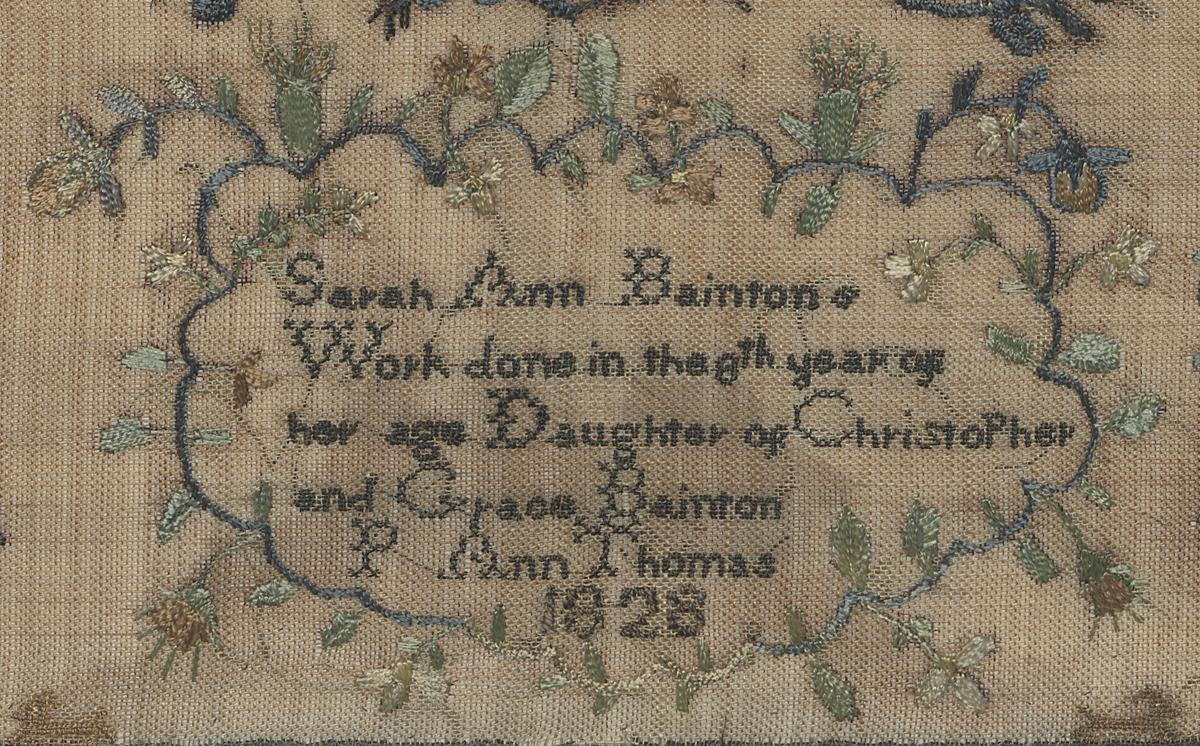 Sarah Ann Bainton s
Work done in the 9th year of
her age Daughter of Christopher
and Grace Bainton
P Ann Thomas
1828